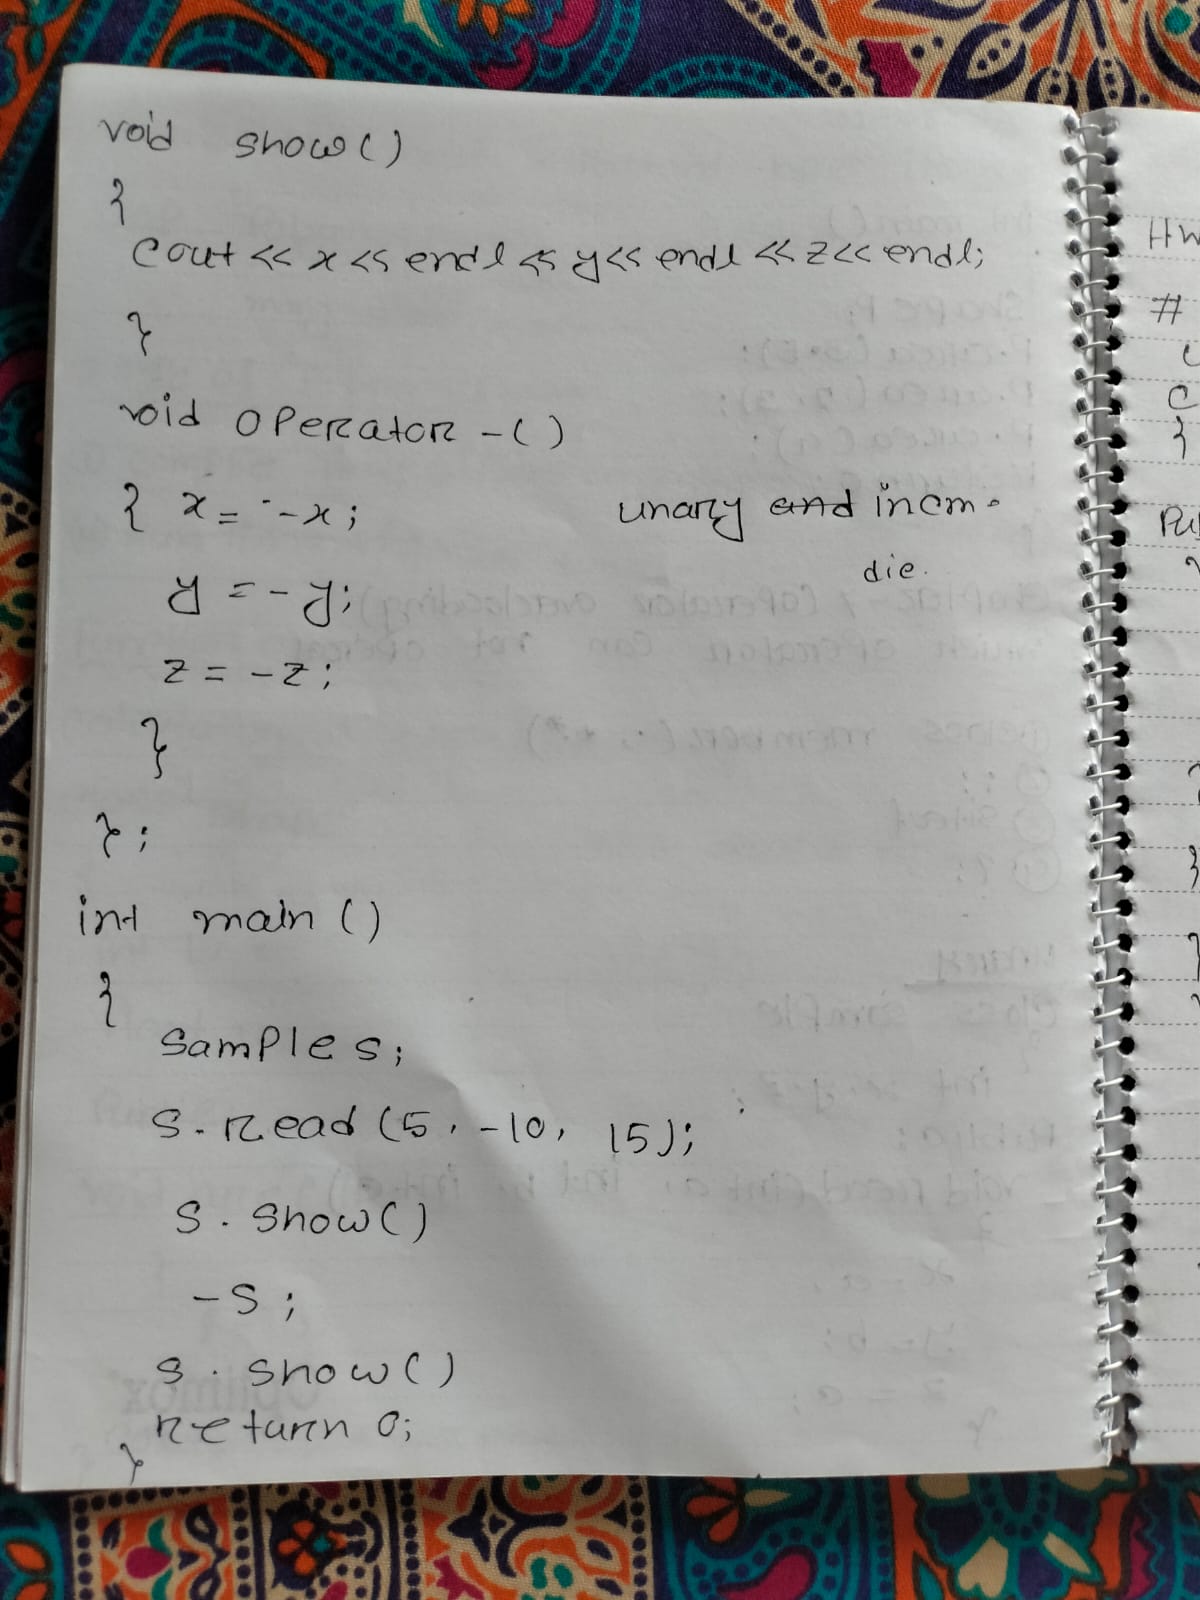 void show()
{
cout << x << endl << y << endl << z << endl;
}
void operator -()
{ x = - -x;
y = -y;
z = -z;
}
};
unary and incm.
die.
int main ()
{
Sample s;
s.read (5, -10, 15);
s. show()
-s;
s. show()
return 0;
}
HW
#
C
{
Pu
}